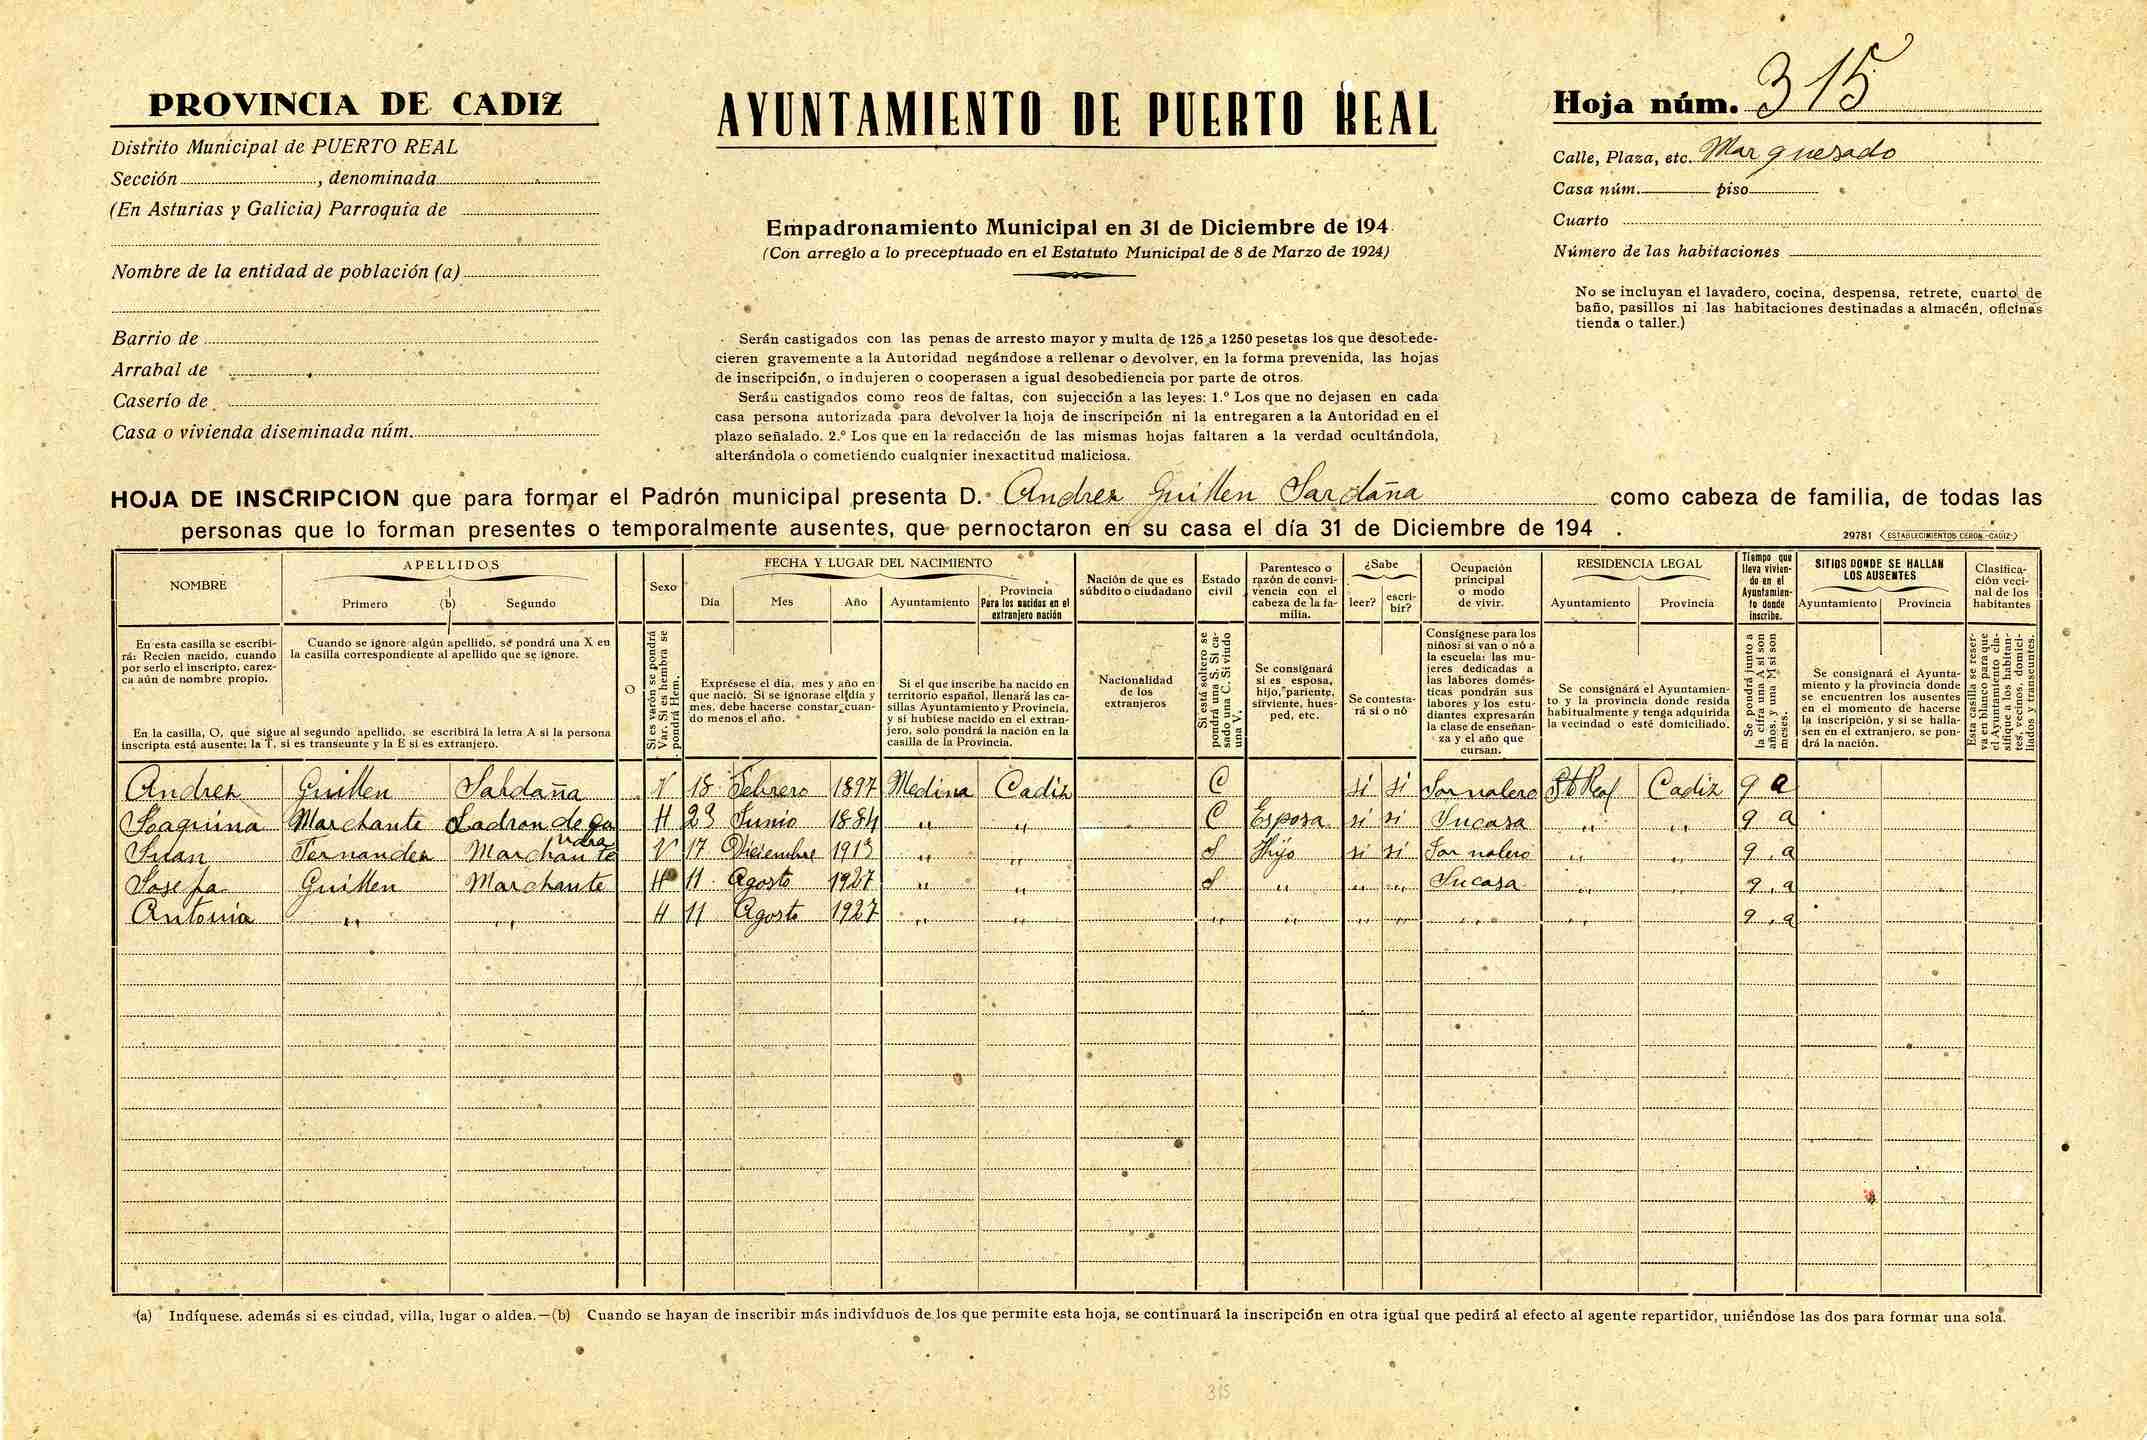 PROVINCIA DE CADIZ
Distrito Municipal de PUERTO REAL
Sección , denominada
(En Asturias y Galicia) Parroquia de
Nombre de la entidad de población (a)
Barrio de
Arrabal de
Caserío de
Casa o vivienda diseminada núm.
AYUNTAMIENTO DE PUERTO REAL
Empadronamiento Municipal en 31 de Diciembre de 194
(Con arreglo a lo preceptuado en el Estatuto Municipal de 8 de Marzo de 1924)
Serán castigados con las penas de arresto mayor y multa de 125 a 1250 pesetas los que desobede-
cieren gravemente a la Autoridad negándose a rellenar o devolver, en la forma prevenida, las hojas
de inscripción, o indujeren o cooperasen a igual desobediencia por parte de otros.
Serán castigados como reos de faltas, con sujección a las leyes: 1.º Los que no dejasen en cada
casa persona autorizada para devolver la hoja de inscripción ni la entregaren a la Autoridad en el
plazo señalado. 2.º Los que en la redacción de las mismas hojas faltaren a la verdad ocultándola,
alterándola o cometiendo cualqnier inexactitud maliciosa.
Hoja núm. 315
Calle, Plaza, etc. Marquesado
Casa núm. piso
Cuarto
Número de las habitaciones
No se incluyan el lavadero, cocina, despensa, retrete, cuarto de
baño, pasillos ni las habitaciones destinadas a almacén, oficinas
tienda o taller.)
HOJA DE INSCRIPCION que para formar el Padrón municipal presenta D. Andres Guillen Sardaña como cabeza de familia, de todas las
personas que lo forman presentes o temporalmente ausentes, que pernoctaron en su casa el día 31 de Diciembre de 194 .
29781 ESTABLECIMIENTOS CERON.-CADIZ
NOMBRE
APELLIDOS
Primero (b) Segundo
O
Sexo
FECHA Y LUGAR DEL NACIMIENTO
Día Mes Año Ayuntamiento Provincia
Para los nacidos en el
extranjero nación
Nación de que es
súbdito o ciudadano
Estado
civil
Parentesco o
razón de convi-
vencia con el
cabeza de la fa-
milia.
¿Sabe
leer? escri-
bir?
Ocupación
principal
o modo
de vivir.
RESIDENCIA LEGAL
Ayuntamiento Provincia
Tiempo que
lleva vivien-
do en el
Ayuntamien-
to donde
inscribe.
SITIOS DONDE SE HALLAN
LOS AUSENTES
Ayuntamiento Provincia
Clasifica-
ción veci-
nal de los
habitantes
En esta casilla se escribi-
rá: Recien nacido, cuando
por serlo el inscripto, carez-
ca aún de nombre propio.
Cuando se ignore algún apellido, se pondrá una X en
la casilla correspondiente al apellido que se ignore.
En la casilla, O, que sigue al segundo apellido, se escribirá la letra A si la persona
inscripta está ausente: la T, si es transeunte y la E si es extranjero.
Si es varón se pondrá
Var. Si es hembra se
pondrá Hem.
Exprésese el día, mes y año en
que nació. Si se ignorase el día y
mes, debe hacerse constar cuan-
do menos el año.
Si el que inscribe ha nacido en
territorio español, llenará las ca-
sillas Ayuntamiento y Provincia,
y si hubiese nacido en el extran-
jero, solo pondrá la nación en la
casilla de la Provincia.
Nacionalidad
de los
extranjeros
Si está soltero se
pondrá una S. Si ca-
sado una C. Si viudo
una V.
Se consignará
si es esposa,
hijo, pariente,
sirviente, hues-
ped, etc.
Se contesta-
rá si o nó
Consígnese para los
niños: si van o nó a
la escuela: las mu-
jeres dedicadas a
las labores domés-
ticas pondrán sus
labores y los estu-
diantes expresarán
la clase de enseñan-
za y el año que
cursan.
Se consignárá el Ayuntamien-
to y la provincia donde resida
habitualmente y tenga adquirida
la vecindad o esté domiciliado.
Se pondrá junto a
la cifra una A si son
años, y una M si son
meses.
Se consignará el Ayunta-
miento y la provincia donde
se encuentren los ausentes
en el momento de hacerse
la inscripción, y si se halla-
sen en el extranjero, se pon-
drá la nación.
Esta casilla se reser-
va en blanco para que
el Ayuntamiento cla-
sifique a los habitan-
tes, vecinos, domici-
liados y transeuntes.
Andres Guillen Saldaña V 18 Febrero 1897 Medina Cadiz C si si Jornalero Pto Real Cadiz 9 a
Joaquina Marchante Ladron de Guevara H 23 Junio 1884 " " C Esposa si si Sucasa " " 9 a
Juan Fernandez Marchante V 17 Diciembre 1913 " " S Hijo si si Jornalero " " 9 a
Josefa Guillen Marchante H 11 Agosto 1927 " " S " " " Sucasa " " 9 a
Antonia " " H 11 Agosto 1927 " " " " " " " " " 9 a
(a) Indíquese. además si es ciudad, villa, lugar o aldea.—(b) Cuando se hayan de inscribir más indivíduos de los que permite esta hoja, se continuará la inscripción en otra igual que pedirá al efecto al agente repartidor, uniéndose las dos para formar una sola.
315